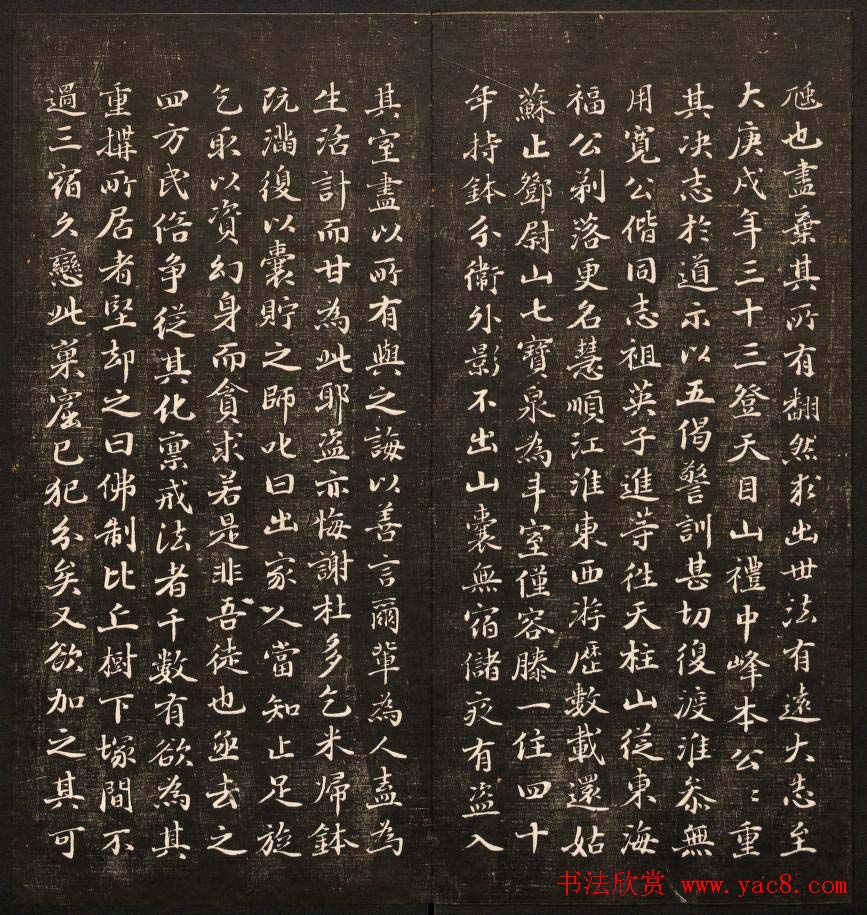 也盡棄其所有翻然求出世法有遠大志至
大庚戌年三十三登天目山禮中峰本公〻重
其决志於道示以五偈警訓甚切復渡淮叅無
用寬公偕同志祖英子進等往天柱山從東海
福公剃落更名慧順江淮東西游歷數載還姑
蘇止鄧尉山七寶泉為斗室僅容膝一住四十
年持鉢分衞外影不出山囊無宿儲夜有盗入
其室盡以所有與之誨以善言爾輩為人盍為
生活計而甘為此耶盗亦悔謝杜多乞米歸鉢
既滿復以囊貯之師叱曰出家人當知止足旋
乞取以資幻身而貪求若是非吾徒也亟去之
四方民俗争從其化禀戒法者千數有欲為其
重搆所居者堅却之曰佛制比丘樹下塚間不
過三宿久戀此窠窟已犯分矣又欲加之其可
书法欣赏 www.yac8.com